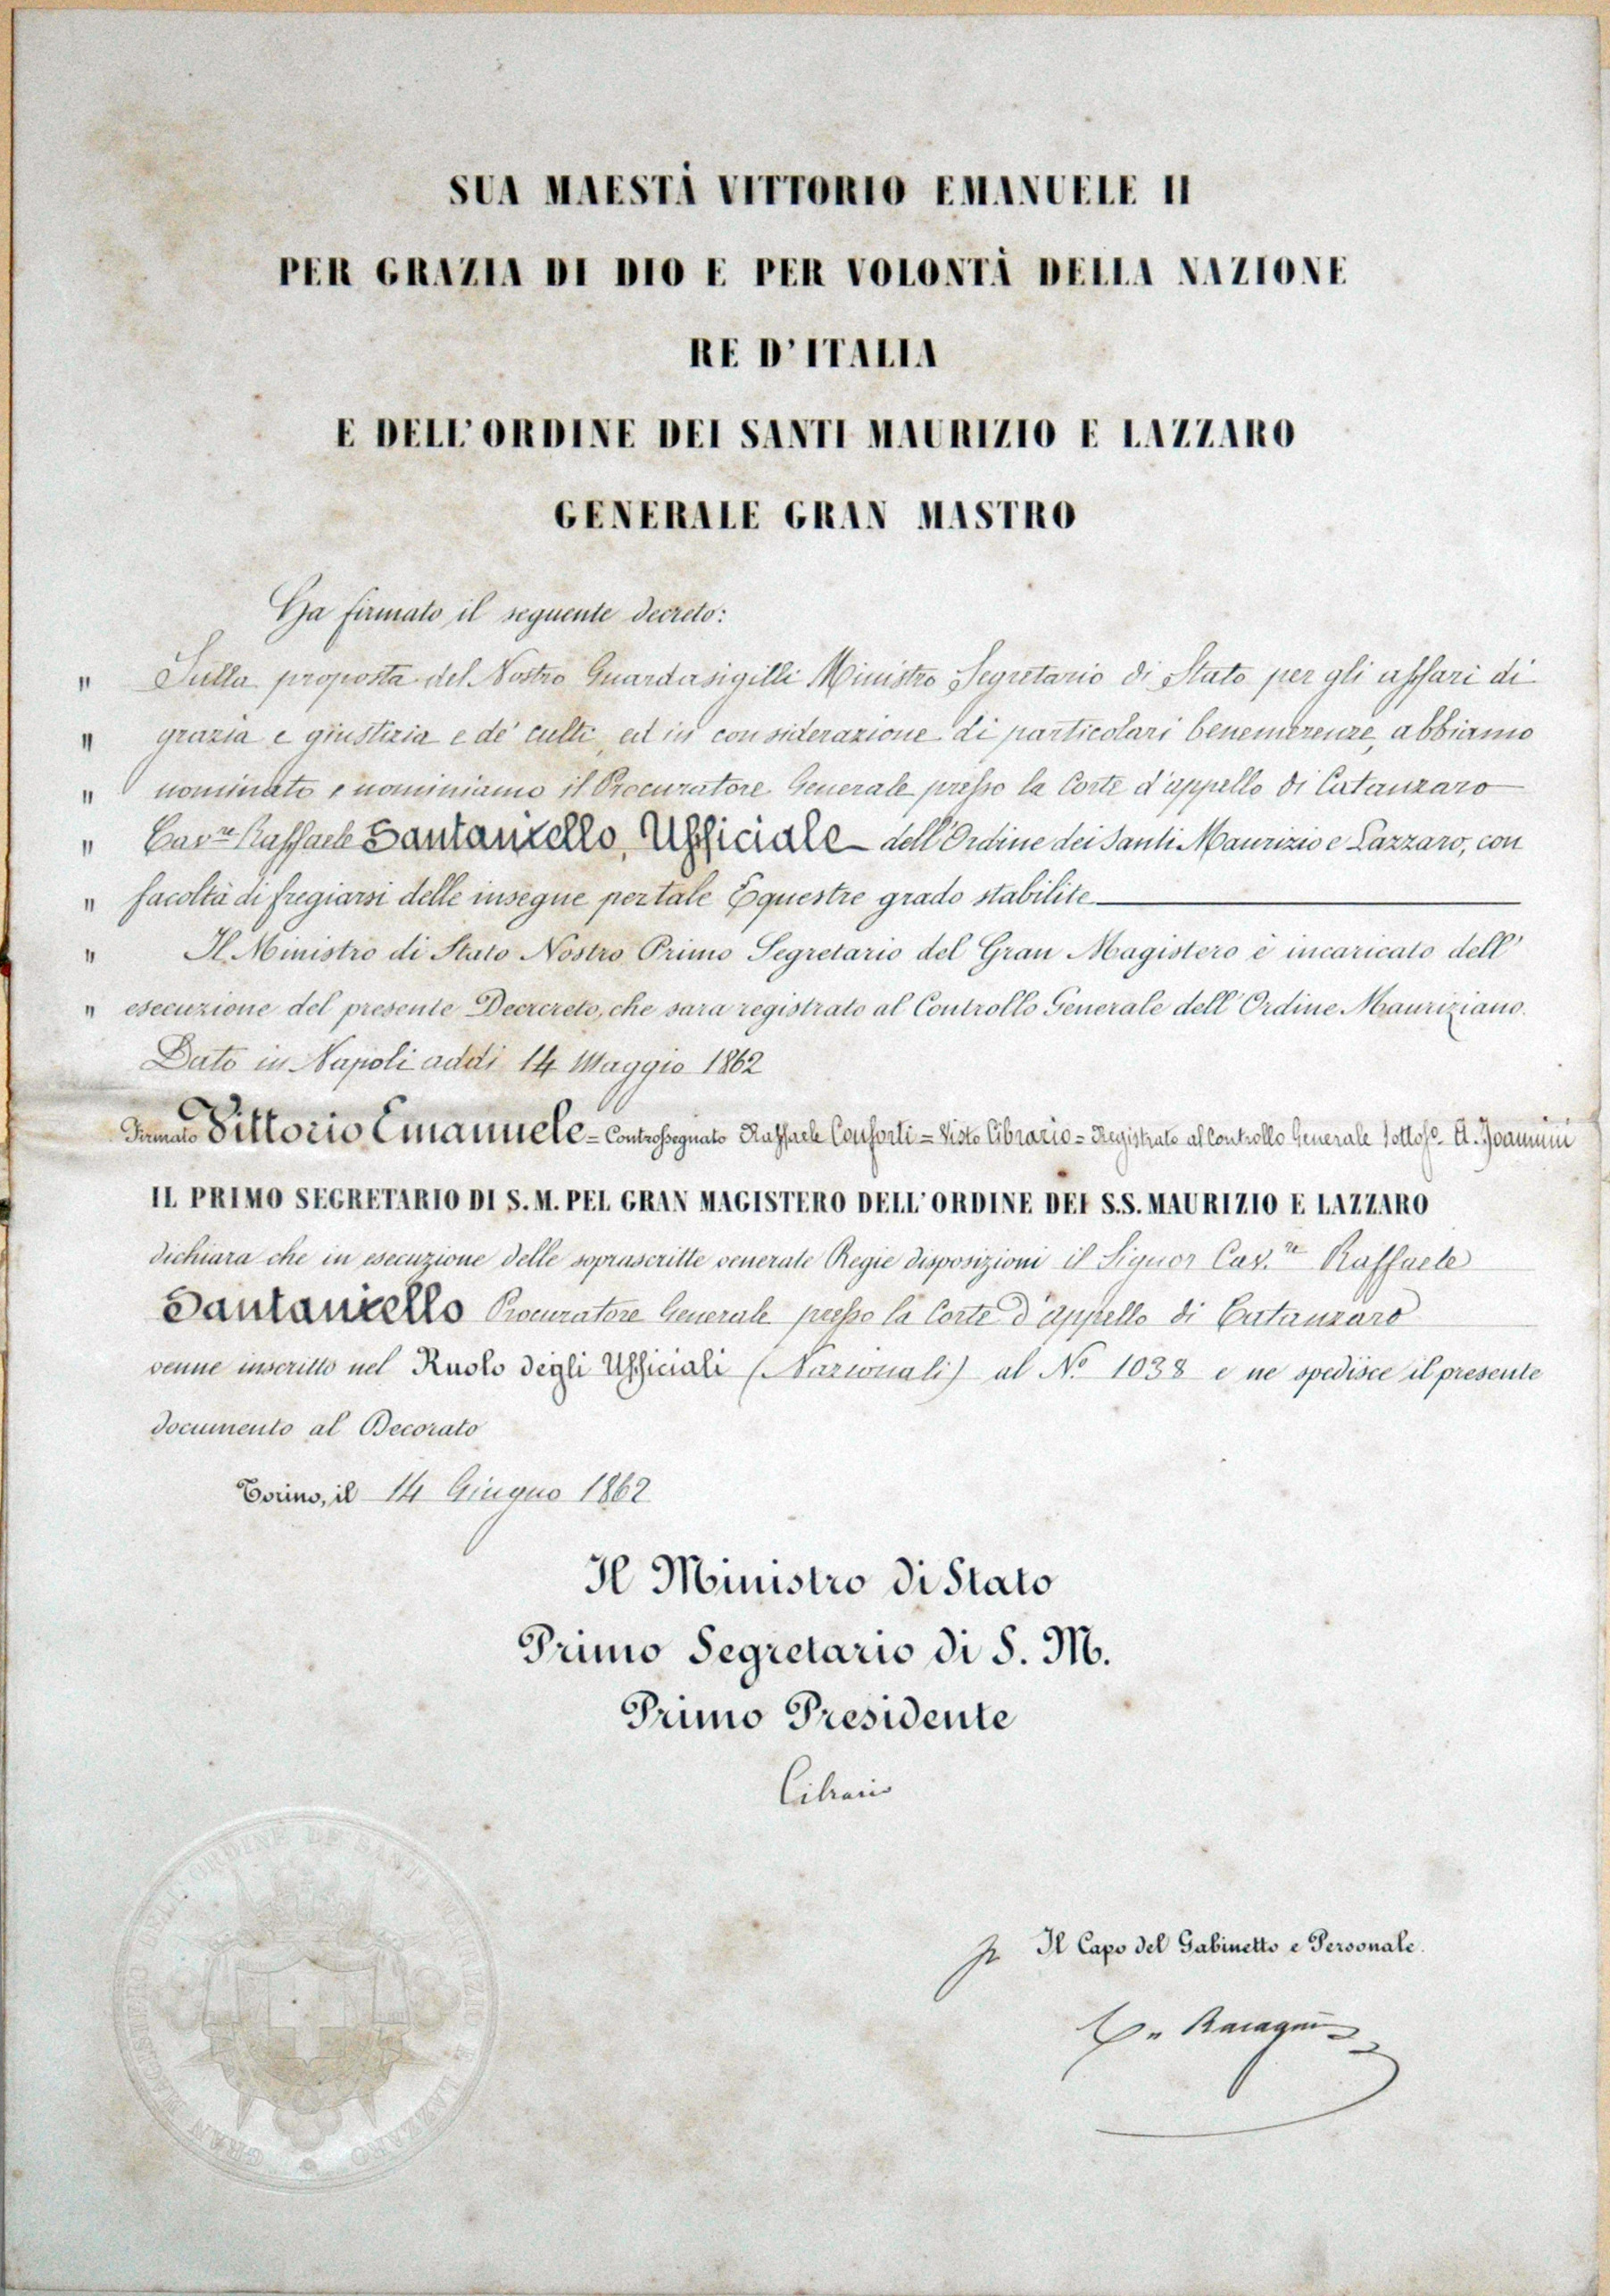 SUA MAESTÀ VITTORIO EMANUELE II
PER GRAZIA DI DIO E PER VOLONTÀ DELLA NAZIONE
RE D'ITALIA
E DELL'ORDINE DEI SANTI MAURIZIO E LAZZARO
GENERALE GRAN MASTRO
Ha firmato il seguente decreto:
" Sulla proposta del Nostro Guardasigilli Ministro Segretario di Stato per gli affari di
" grazia e giustizia e de' culti, ed in considerazione di particolari benemerenze, abbiamo
" nominato e nominiamo il Procuratore Generale presso la Corte d'appello di Catanzaro
" Cav.re Raffaele Santaniello, Ufficiale dell'Ordine dei Santi Maurizio e Lazzaro, con
" facoltà di fregiarsi delle insegne per tale Equestre grado stabilite
" Il Ministro di Stato Nostro Primo Segretario del Gran Magistero è incaricato dell'
" esecuzione del presente Decrcreto, che sara registrato al Controllo Generale dell'Ordine Mauriziano.
Dato in Napoli addi 14 Maggio 1862
Firmato Vittorio Emanuele = Controssegnato Raffaele Conforti = Visto Cibrario = Registrato al Controllo Generale Sottos.o A. Joannini
IL PRIMO SEGRETARIO DI S. M. PEL GRAN MAGISTERO DELL'ORDINE DEI S.S. MAURIZIO E LAZZARO
dichiara che in esecuzione delle soprascritte venerate Regie disposizioni il Signor Cav.re Raffaele
Santaniello Procuratore Generale presso la Corte d'appello di Catanzaro
venne inscritto nel Ruolo degli Ufficiali (Nazionali) al N.o 1038 e ne spedisce il presente
documento al Decorato
Torino, il 14 Giugno 1862
Il Ministro di Stato
Primo Segretario di S. M.
Primo Presidente
Cibrario
Il Capo del Gabinetto e Personale.
GRAN MAGISTERO DELL'ORDINE DE' SANTI MAURIZIO E LAZZARO